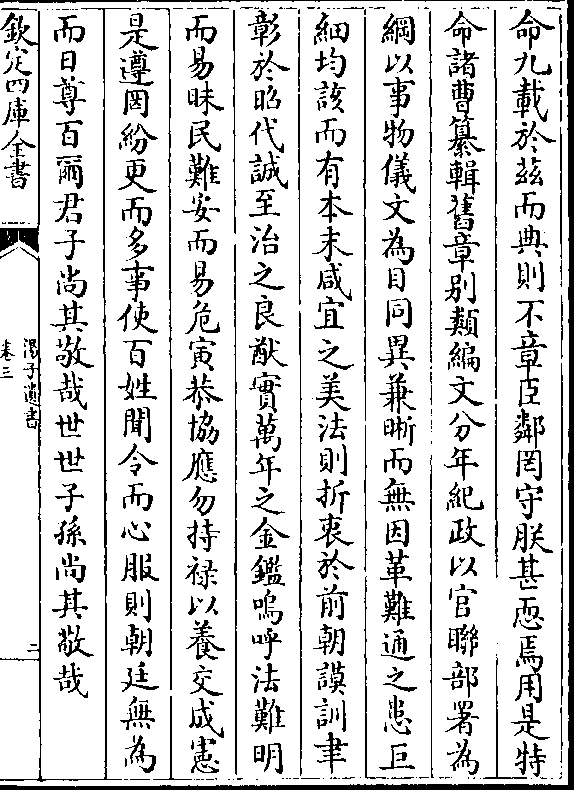 命九載於茲而典則不章臣鄰罔守朕甚恧焉用是特
命諸曹纂輯舊章别類編文分年紀政以官聯部署為
綱以事物儀文為目同異兼晰而無因革難通之患巨
細均該而有本末咸宜之美法則折衷於前朝謨訓聿
彰於昭代誠至治之良猷實萬年之金鑑嗚呼法難明
而易昧民難安而易危寅恭協應勿持禄以養交成憲
是遵罔紛更而多事使百姓聞令而心服則朝廷無為
而日尊百爾君子尚其敬哉世世子孫尚其敬哉
欽定四庫全書
湯子遺書
卷三
二